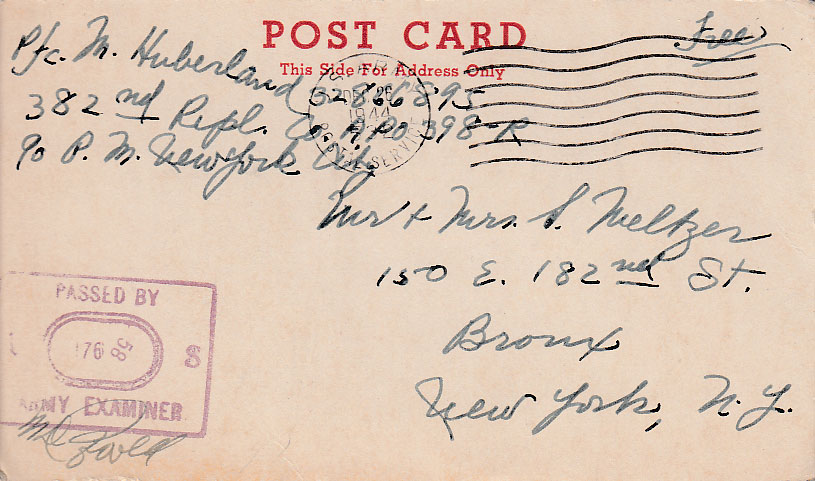 POST CARD
This Side For Address Only
Free
Pfc. M. Huberland 32866895
382nd Repl. Co. APO 398-R
c/o P. M. New York City
U.S. ARMY
DEC 26
1944
POSTAL SERVICE
Mr + Mrs. S. Meltzer
150 E. 182nd St.
Bronx
New York, N.Y.
PASSED BY
S
ARMY EXAMINER